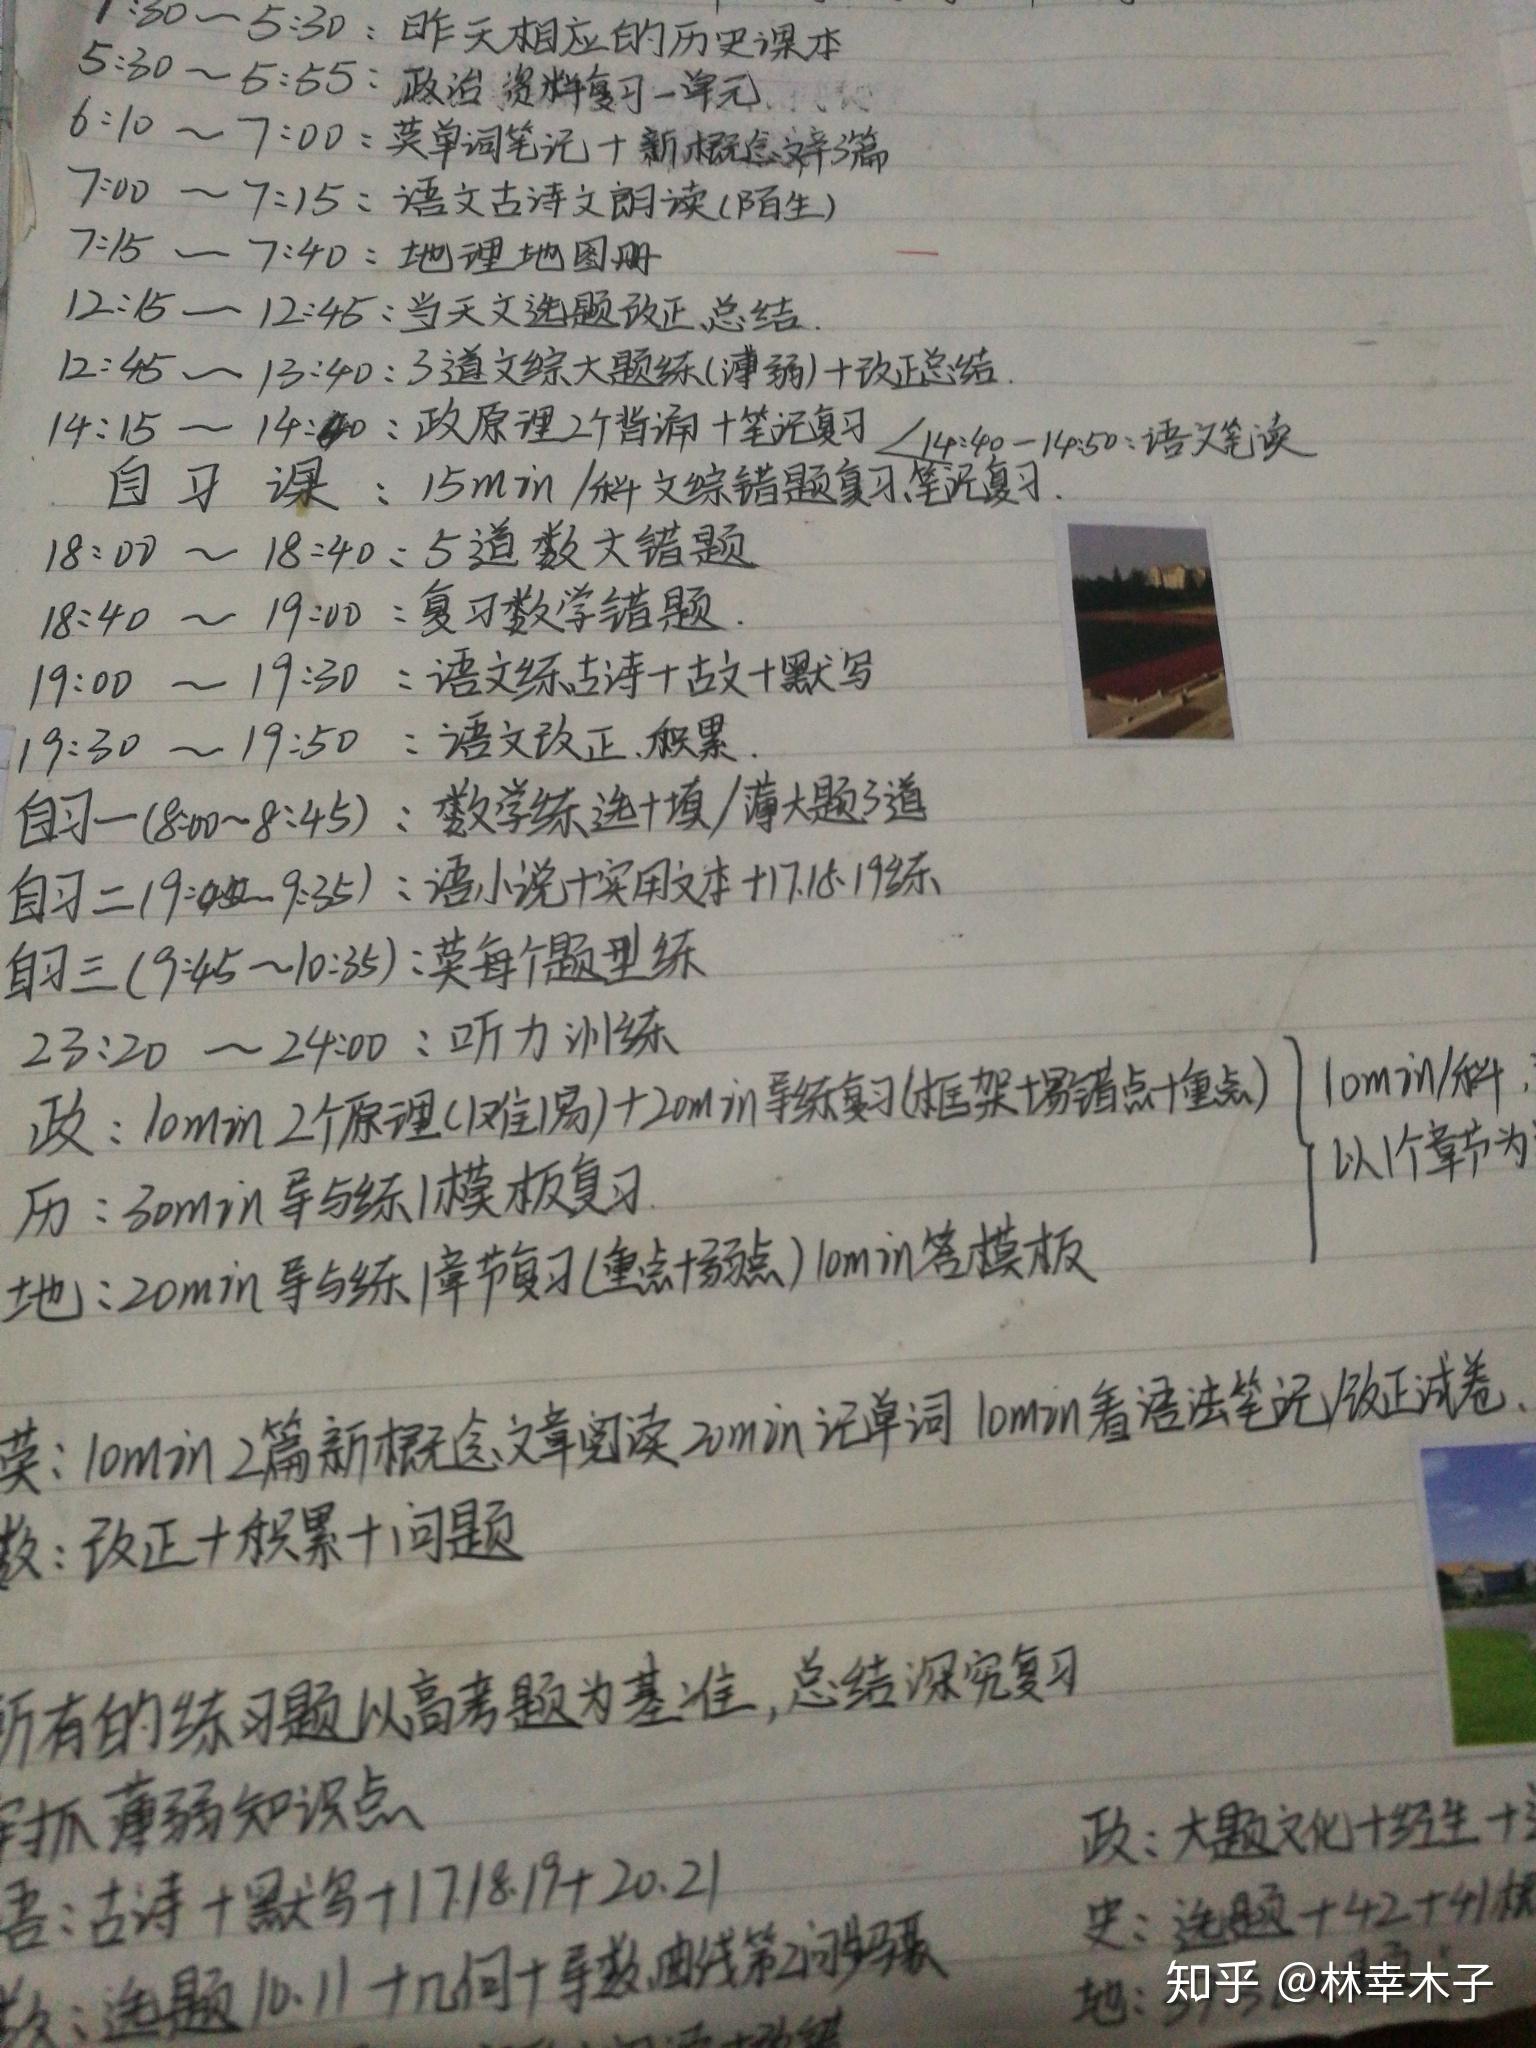 :30～5:30：昨天相应的历史课本
5:30～5:55：政治资料复习一单元
6:10～7:00：英单词笔记+新概念文章3篇
7:00～7:15：语文古诗文朗读(陌生)
7:15～7:40：地理地图册
12:15～12:45：当天文选题改正、总结.
12:45～13:40：3道文综大题练(薄弱)+改正总结.
14:15～14:40：政原理2个背诵+笔记复习 14:40-14:50:语文笔读
自习课：15min/科文综错题复习、笔记复习.
18:00～18:40：5道数大错题
18:40～19:00：复习数学错题.
19:00～19:30：语文练古诗+古文+默写
19:30～19:50：语文改正、积累.
自习一(8:00～8:45)：数学练选+填/薄大题3道
自习二(9:～9:35)：语小说+实用文本+17.18.19练
自习三(9:45～10:35)：英每个题型练
23:20～24:00：听力训练
政：10min 2个原理(1难1易)+20min导练复习(框架+易错点+重点) 10min/科,
历：30min导与练1模板复习. 以1个章节为
地：20min导与练1章节复习(重点+弱点)10min答模板
英：10min 2篇新概念文章阅读 20min记单词 10min看语法笔记/改正试卷.
数：改正+积累+问题
所有的练习题以高考题为基准,总结深究复习
抓薄弱知识点
语：古诗+默写+17.18.19+20.21
数：选题10.11+几何+导数曲线第2问步骤
政：大题文化+经生+
史：选题+42+41
地：
知乎 @林幸木子